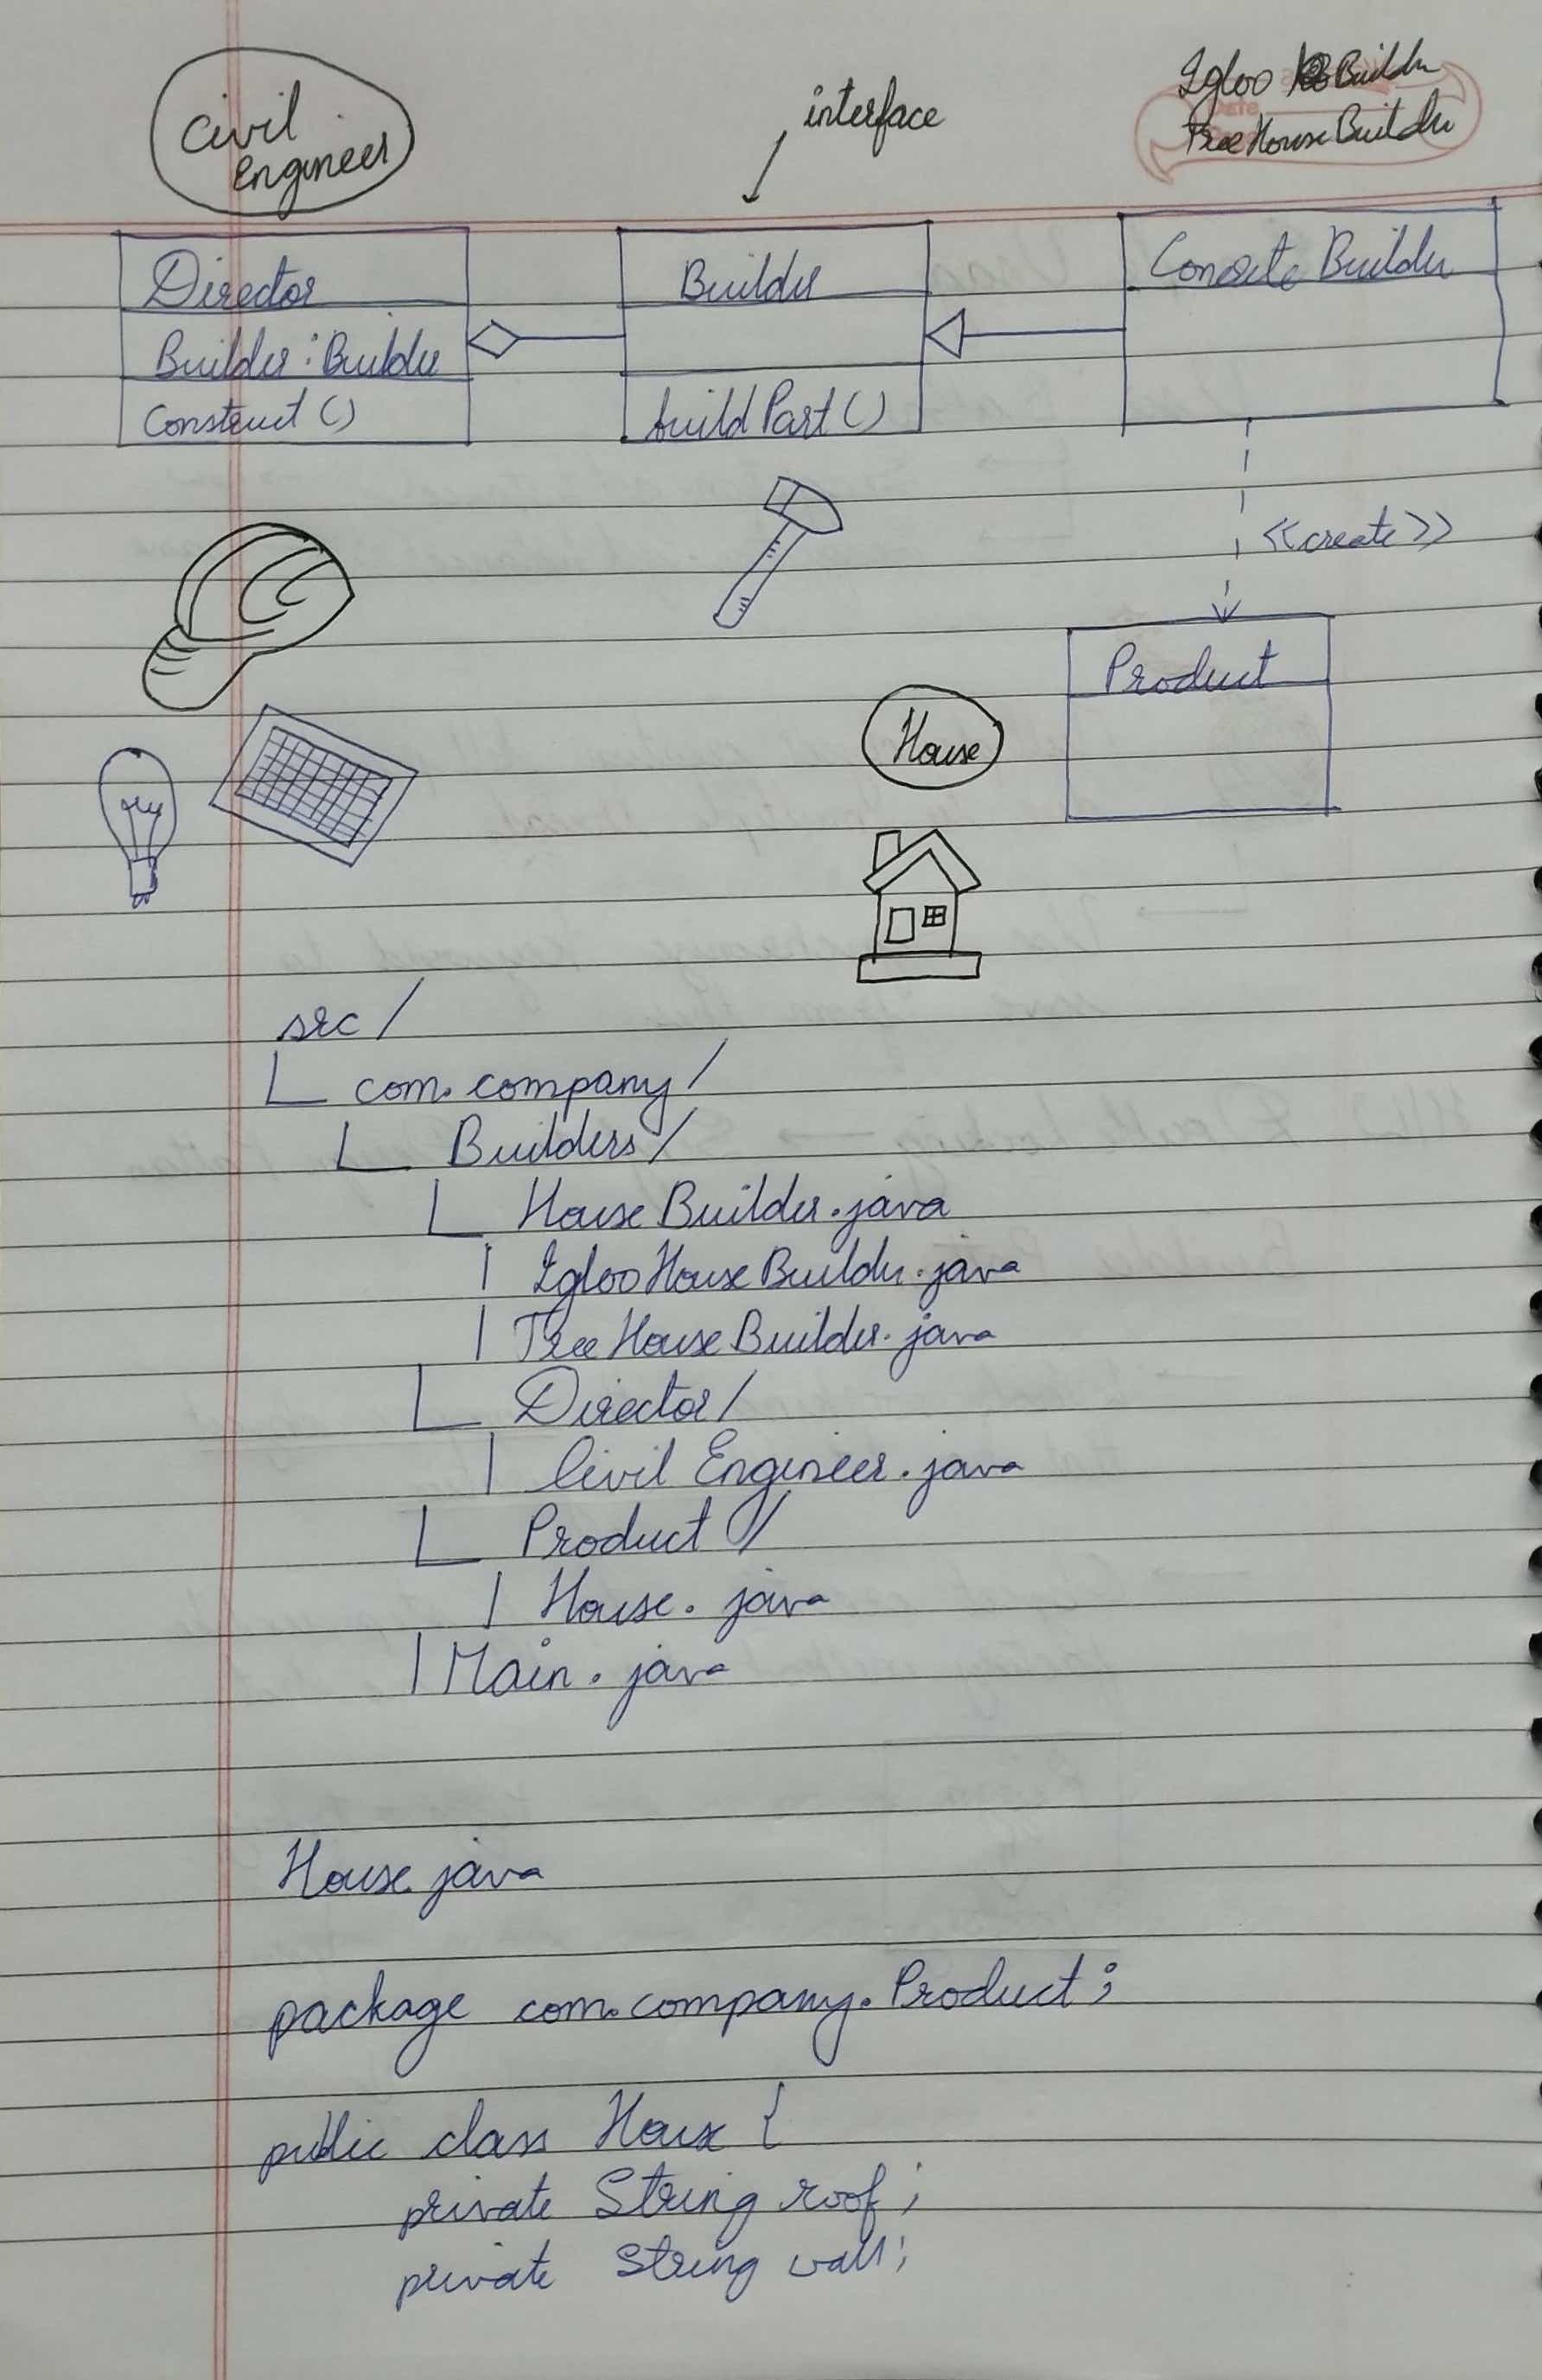 Civil
Engineer
interface
Igloo Builder
Tree House Builder
Director
Builder : Builder
Construct ()
Builder
buildPart ()
Concrete Builder
<<create>>
Product
House
src /
com. company /
Builders /
House Builder. java
Igloo House Builder. java
Tree House Builder. java
Director /
Civil Engineer. java
Product /
House. java
Main. java
House. java
package com. company. Product ;
public class House {
private String roof ;
private String wall ;